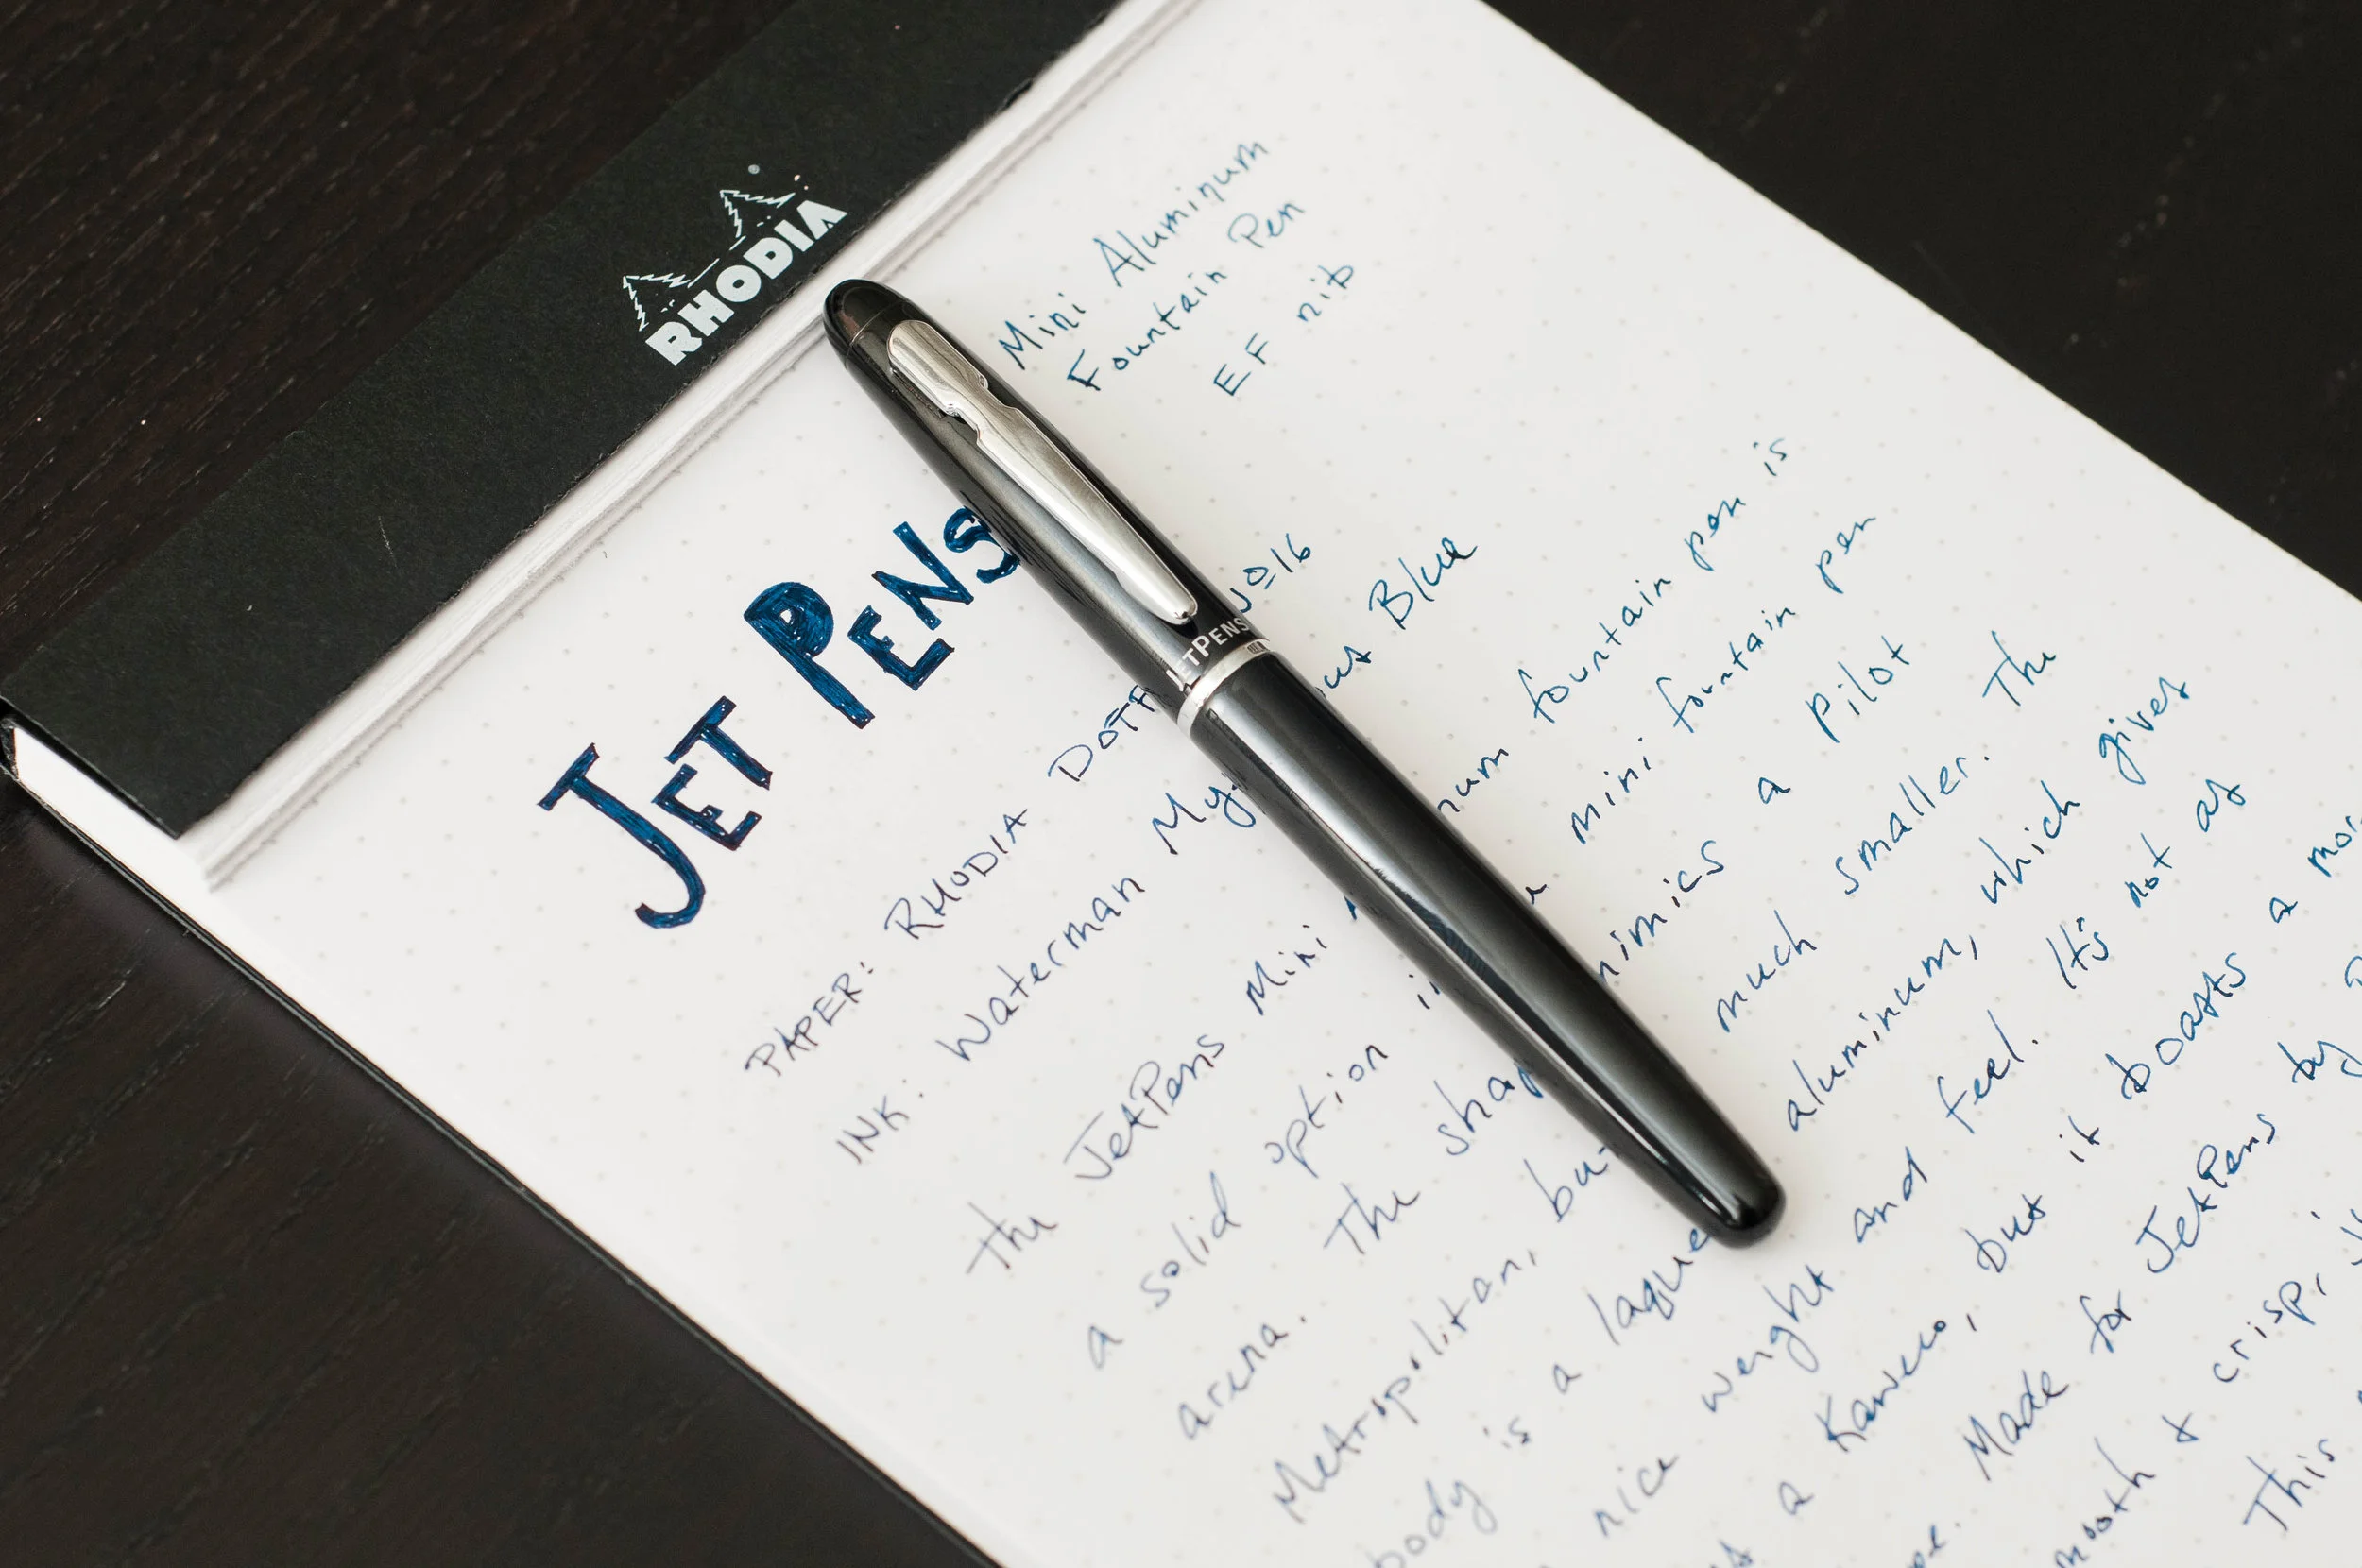 RHODIA
Mini Aluminum
Fountain Pen
EF nib
JET PENS
JETPENS
PAPER: RHODIA DOT No16
INK: Waterman Blue
The JetPens Mini fountain pen is
a solid option mini fountain pen
arena. The a Pilot
Metropolitan, much smaller. The
body is a aluminum, which gives
nice weight and feel. It's not as
a Kaweco, but it boasts a
Made for JetPens by
& crisp,
This